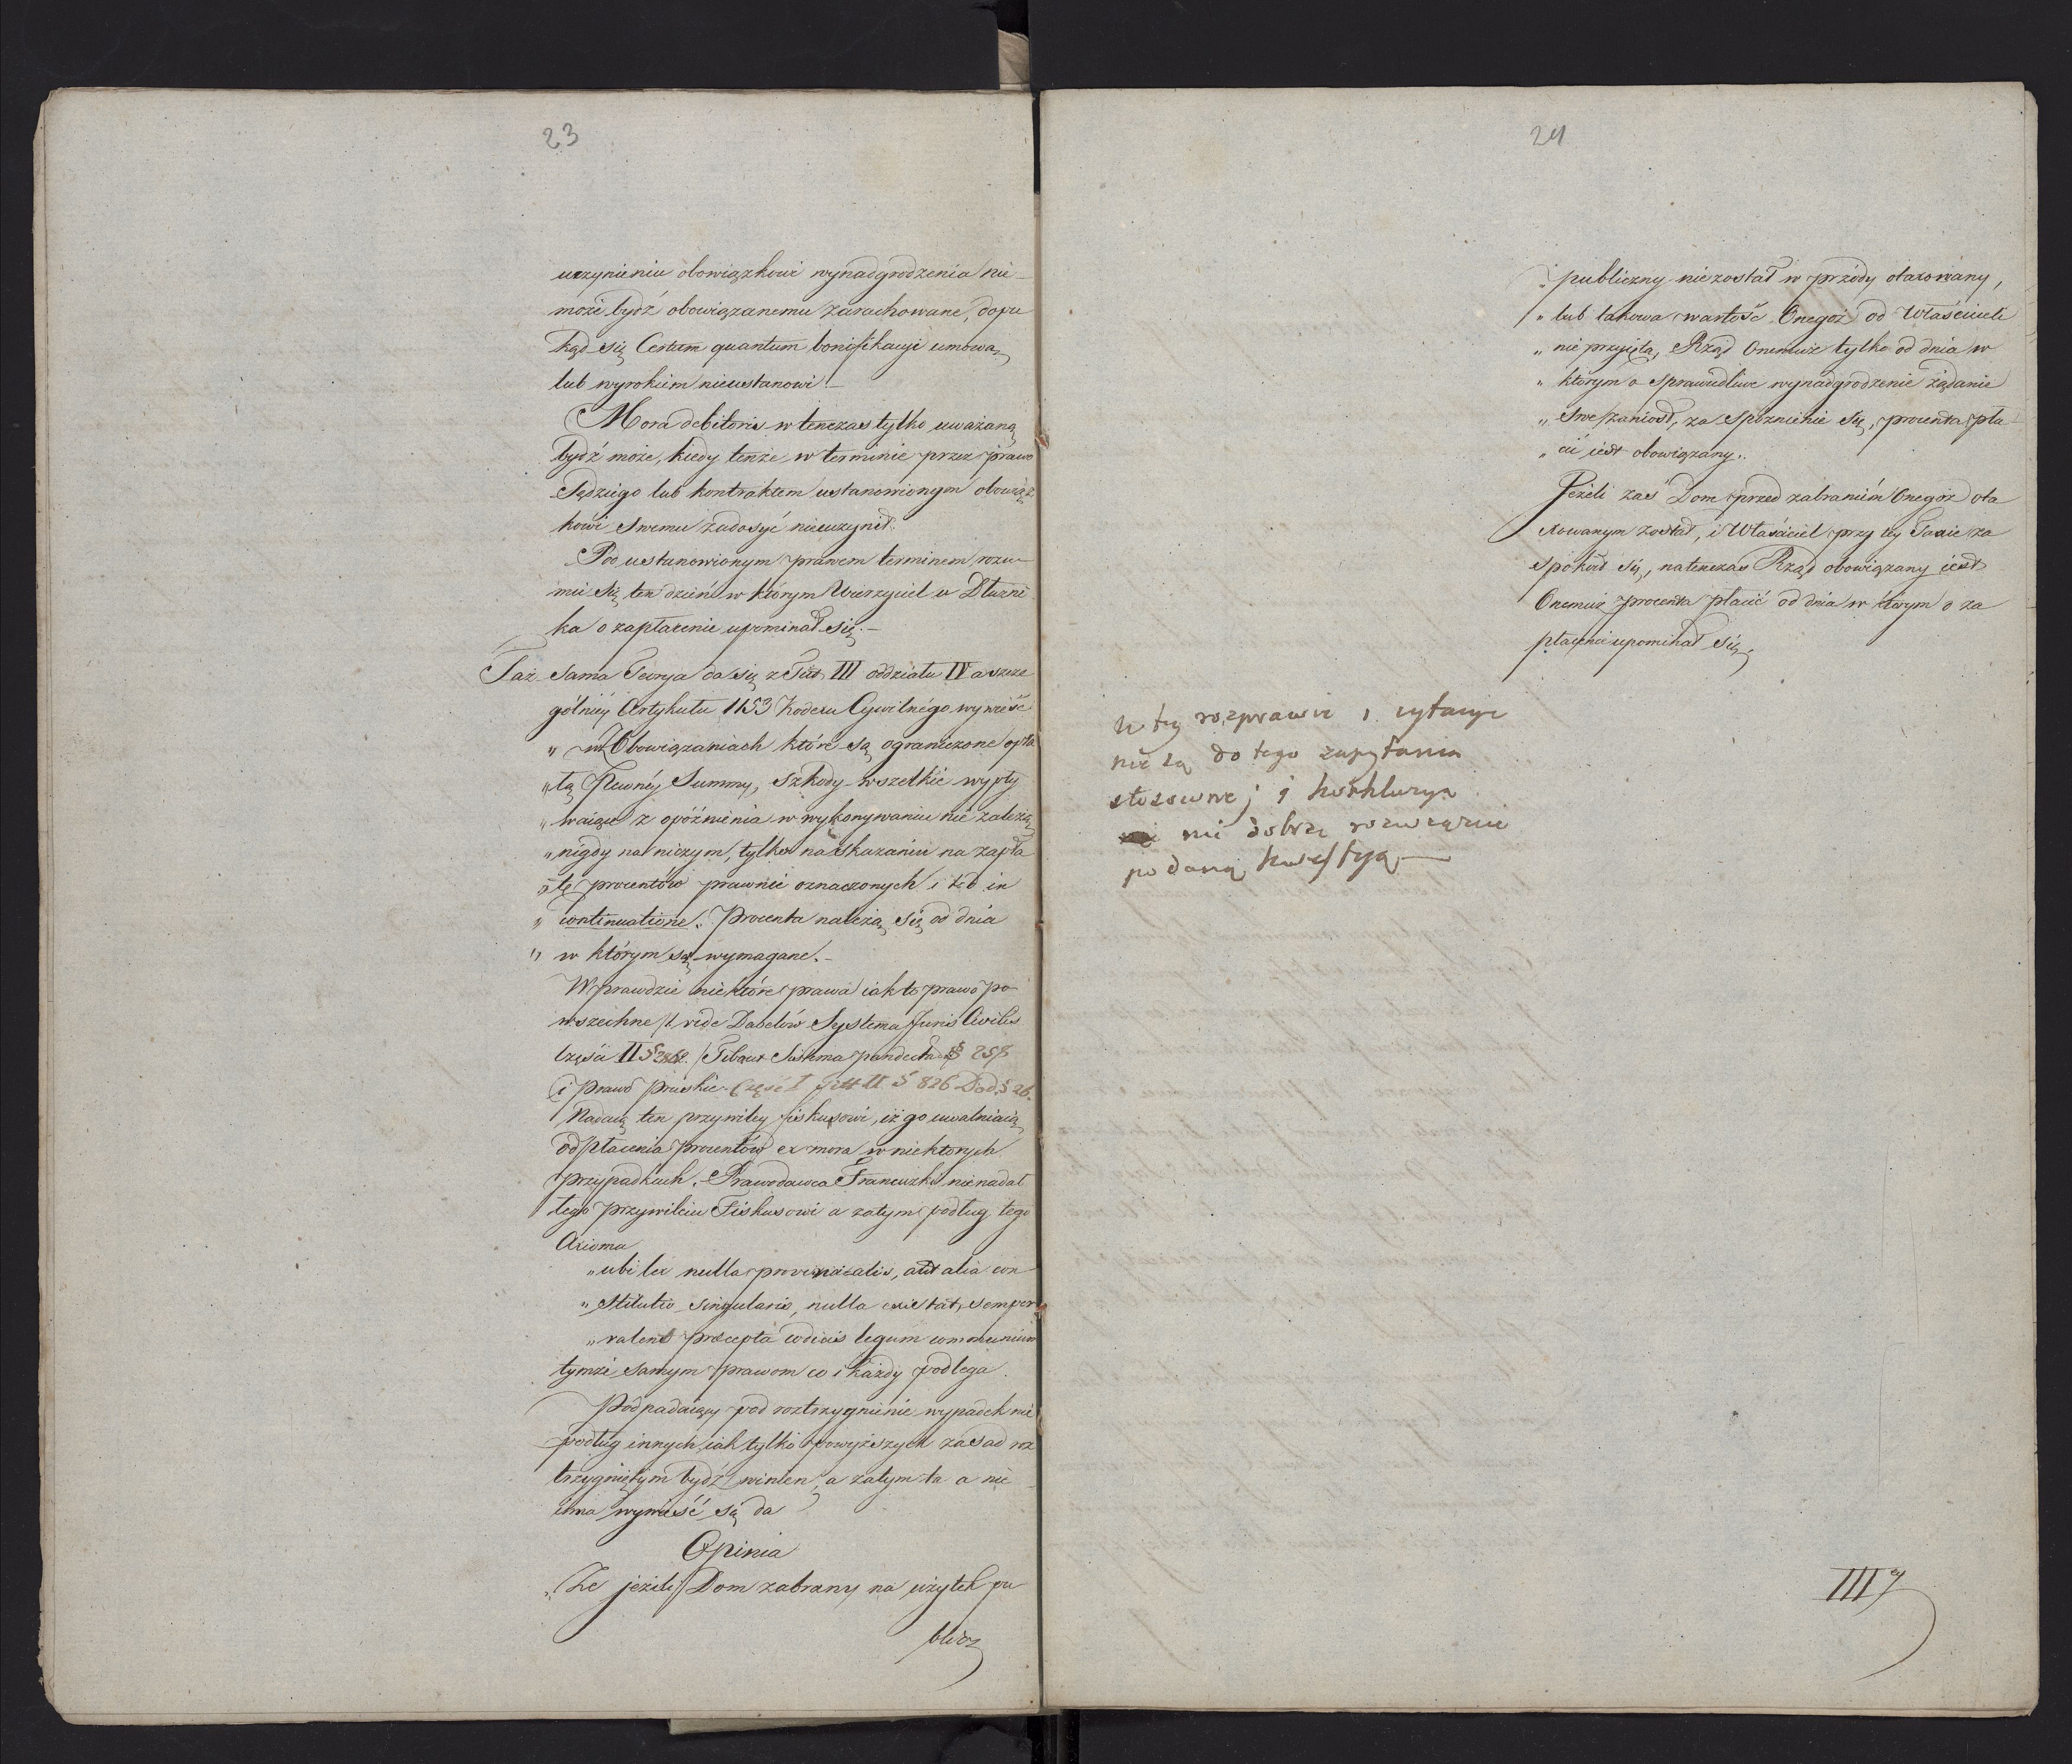 23
uczynieniu obowiązkowi wynadgrodzenia nie
może bydź obowiązanemu zarachowane, dopu
kąd się Certum quantum bonifikacyi umową
lub wyrokiem nieustanowi. –
Mora debitoris w tenczas tylko uważaną
bydź może, kiedy tenże w terminie przez prawo
Sędziego lub kontraktem ustanowionym obowiąz
kowi swemu zadosyć nieuczynił.
Pod ustanowionym prawem terminem rozu-
mie się ten dzień w którym Wierzyciel u Dłużni
ka o zapłacenie upominał się. –
Taż sama Teorya da się z Tit. III oddziału IV a szcze
gólniey Artykułu 1153 Kodexu Cywilnégo wywieść
„ w Obowiązaniach które są ograniczone opła
„ tą Pewnéy Summy, szkody wszelkie wypły
„ waiące z opóźnienia w wykonywaniu nie zależą
„ nigdy na niczym, tylko na skazaniu na zapła
„ tę procentów prawnie oznaczonych i t.d. in
„ continuatione. Procenta należą się od dnia
„ w którym są wymagane. –
Wprawdzie niektóre prawa iak to prawo po-
wszechne /: vide Dabelów Systema Juris Civilis
Części II § 2868. / Tibaut Sistema pandectar § 258
i Prawo Pruskie Część I Titt II § 826 Dod. § 26.
Nadaią ten przywiley fiskusowi, iż go uwalniaią
od płacenia procentów ex mora w niektorych
przypadkach. Prawodawca Francuzki nienadał
tego przywileiu Fiskusowi a zatym podług tego
Axioma
„ ubi lex nulla provincialis, aut alia con-
„ stitutio singularis, nulla existat, semper
„ valent præcepta codicis legum communium
tymże samym prawom co i każdy podlega.
Podpadaiący pod roztrzygnienie wypadek nie
podług innych, iak tylko powyższych zasad roz
trzygniętym bydź winien, a zatym ta a nie
inna wywieść się da
Opinia
„ Że jeżeli Dom zabrany na użytek pu
blicz
24
„ publiczny niezostał w przódy otaxowany,
„ lub takowa wartość Onegoż od Właściciela
„ nie przyięta, Rząd Onemuż tylko od dnia w
„ którym o sprawiedliwe wynadgrodzenie żądanie
„ swe zaniosł, za spóźnienie się, procenta pła-
„ cić iest obowiązany.
Jeżeli zaś Dom przed zabraniem Onegoż ota
xowanym został, i Właściciel przy tey Taxie za
spokoił się, natenczas Rząd obowiązany iest
Onemuż procenta płacić od dnia w którym o za
płacenie upominał się.
W tey rozprawie i cytacye
nie są do tego zapytania
stosowne j i konkluzya
nie dobrze rozwiązuie
podaną kwestyą –
III